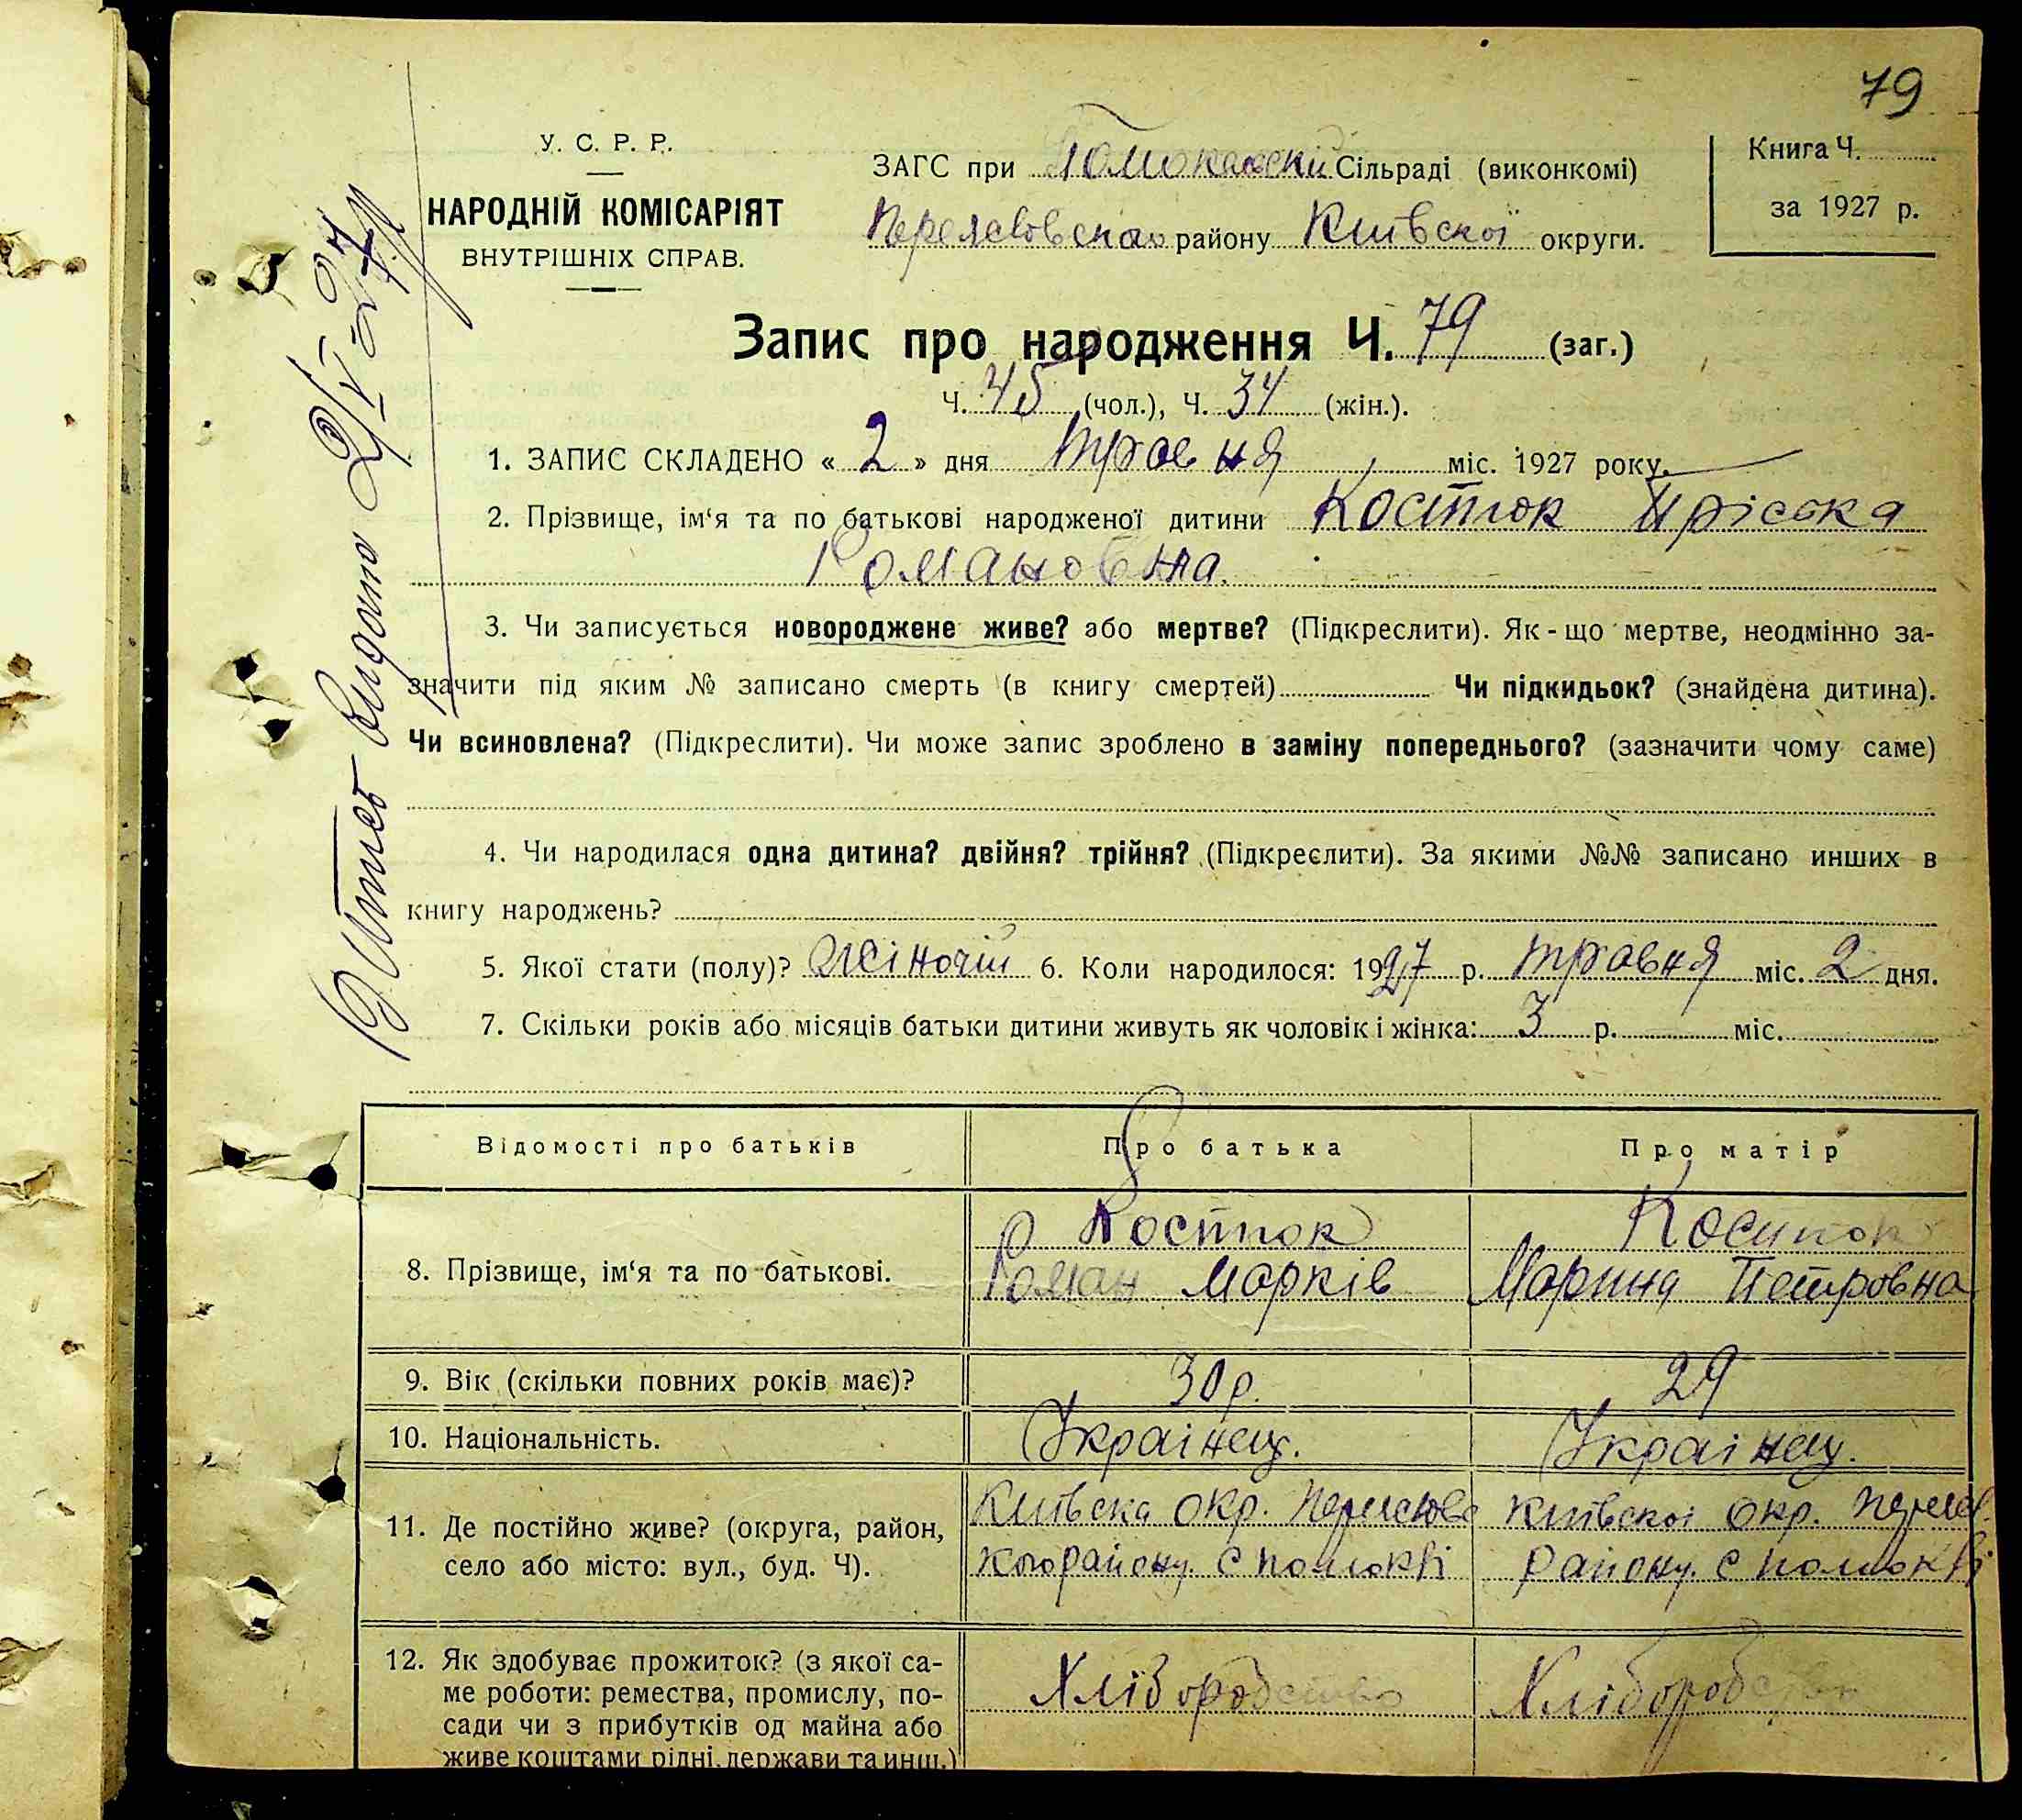 79
У. С. Р. Р.
НАРОДНІЙ КОМІСАРІЯТ
ВНУТРІШНІХ СПРАВ.
ЗАГС при Сільраді (виконкомі)
району Київскої округи.
Книга Ч.
за 1927 р.
Запис про народження Ч. 79 (заг.)
Ч. 45 (чол.), Ч. 34 (жін.).
1. ЗАПИС СКЛАДЕНО « 2 » дня травня міс. 1927 року.
2. Прізвище, ім‘я та по батькові народженої дитини Костюк Пріська
Романовна.
3. Чи записується новороджене живе? або мертве? (Підкреслити). Як-що мертве, неодмінно за-
значити під яким № записано смерть (в книгу смертей) Чи підкидьок? (знайдена дитина).
Чи всиновлена? (Підкреслити). Чи може запис зроблено в заміну попереднього? (зазначити чому саме)
4. Чи народилася одна дитина? двійня? трійня? (Підкреслити). За якими №№ записано инших в
книгу народжень?
5. Якої стати (полу)? жіночій 6. Коли народилося: 1927 р. травня міс. 2 дня.
7. Скільки років або місяців батьки дитини живуть як чоловік і жінка: 3 р. міс.
Витяг видано 2/V-27 р.
Відомості про батьків Про батька Про матір
8. Прізвище, ім‘я та по батькові.
Костюк
Роман Марків
Костюк
Марина Петровна
9. Вік (скільки повних років має)? 30 р. 29
10. Національність. Українец. Українец.
11. Де постійно живе? (округа, район,
село або місто: вул., буд. Ч).
Київска окр.
району. с Помокві
Київскої окр.
району. с Помокві
12. Як здобуває прожиток? (з якої са-
ме роботи: ремества, промислу, по-
сади чи з прибутків од майна або
живе коштами рідні, держави та инш.)
Хліборобство
Хліборобство